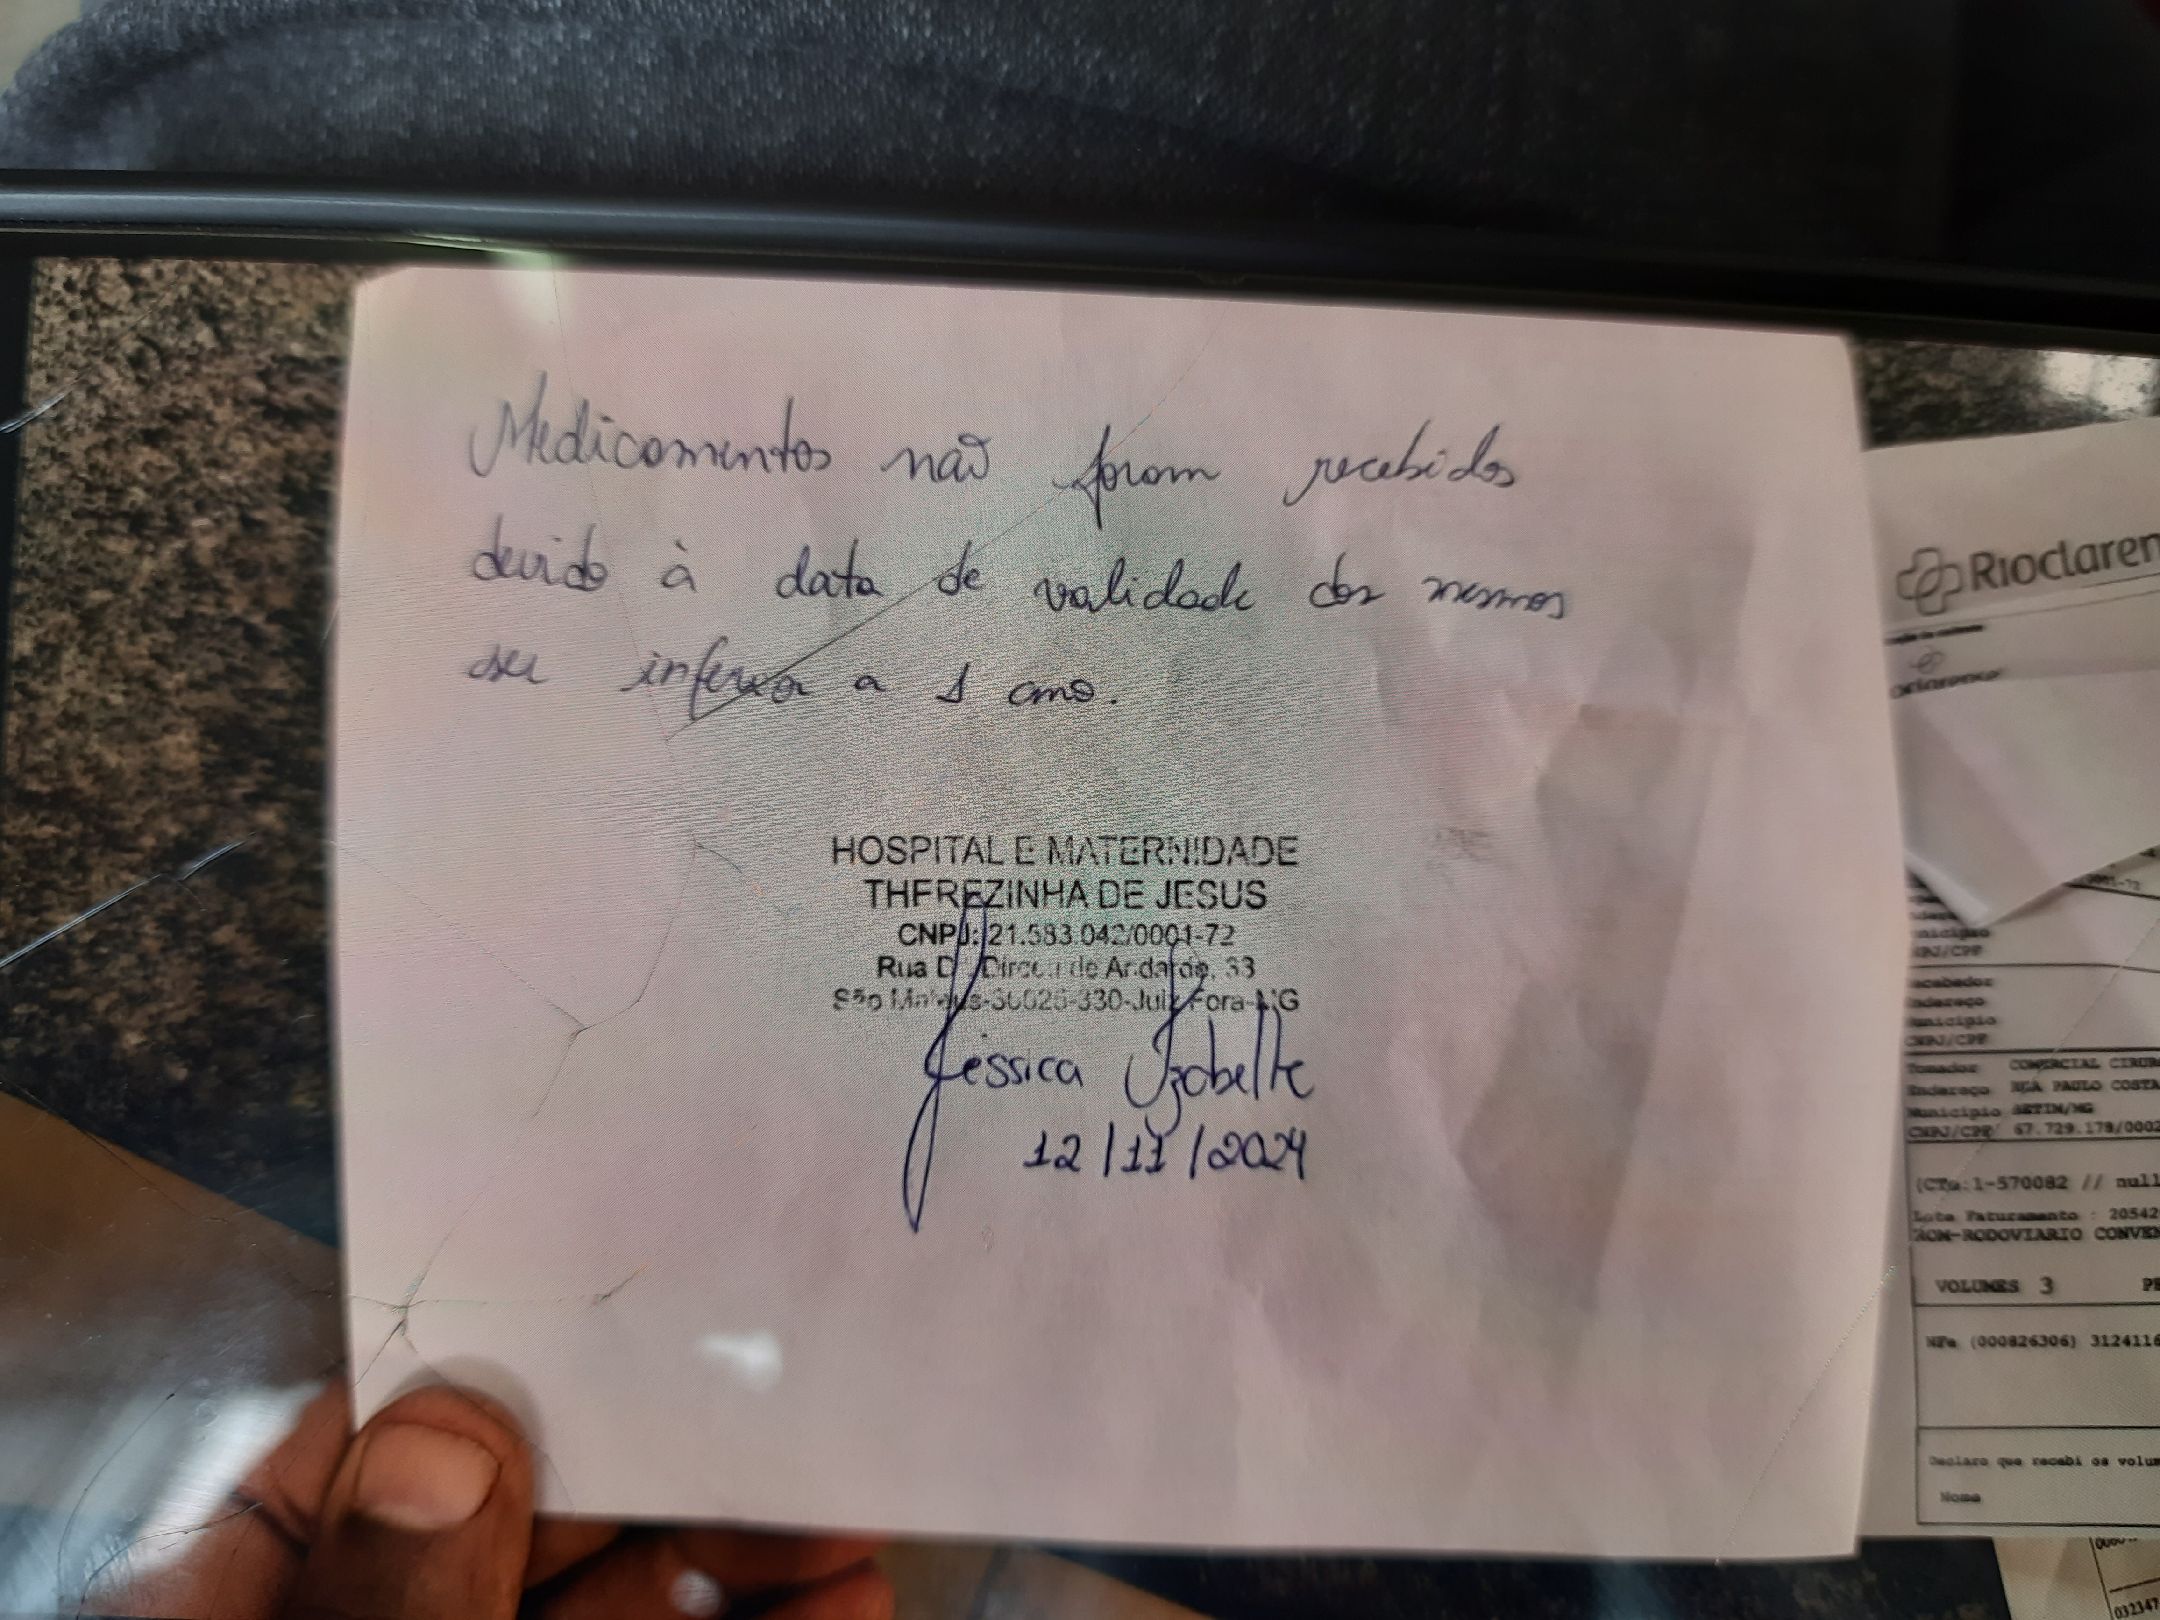 Medicamentos não foram recebidos
devido à data de validade dos mesmos
ser inferior a 1 ano.
HOSPITAL E MATERNIDADE
THEREZINHA DE JESUS
CNPJ: 21.583.042/0001-72
Rua D Dirceu de Andrade, 33
São Mateus-36025-330-Juiz Fora-MG
Jéssica Izabelle
12/11/2024
Rioclaren
Município
CNPJ/CPF
Recebedor
Endereço
Município
CNPJ/CPF
Tomador COMERCIAL CIRUR
Endereço RUA PAULO COSTA
Município BETIM/MG
CNPJ/CPF 67.729.178/0002
(CTe:1-570082 // null
Lote Faturamento : 20542
ROM-RODOVIARIO CONVEN
VOLUMES 3
NFe (000826306) 3124116
Declaro que recebi os volum
Nome
032347